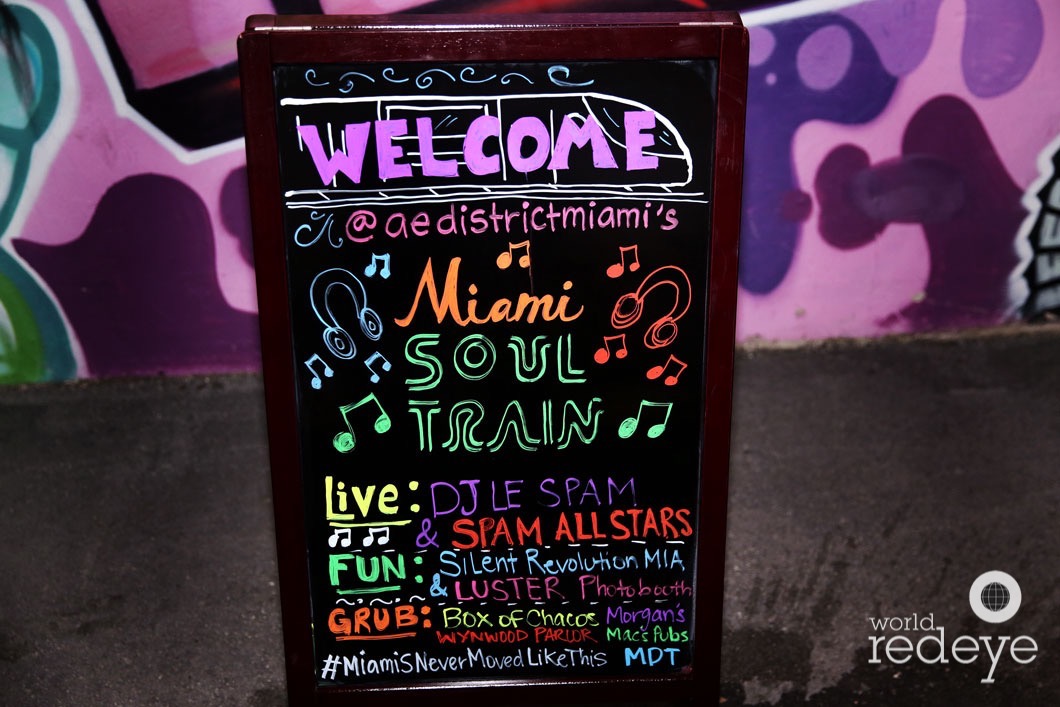 WELCOME
@aedistrictmiami's
Miami
SOUL
TRAIN
Live: DJ LE SPAM
& SPAM ALLSTARS
FUN: Silent Revolution MIA
& LUSTER Photobooth
GRUB: Box of Chacos Morgan's
WYNWOOD PARLOR Mac's Pubs
#MiamiSNeverMovedLikeThis MDT
world
redeye